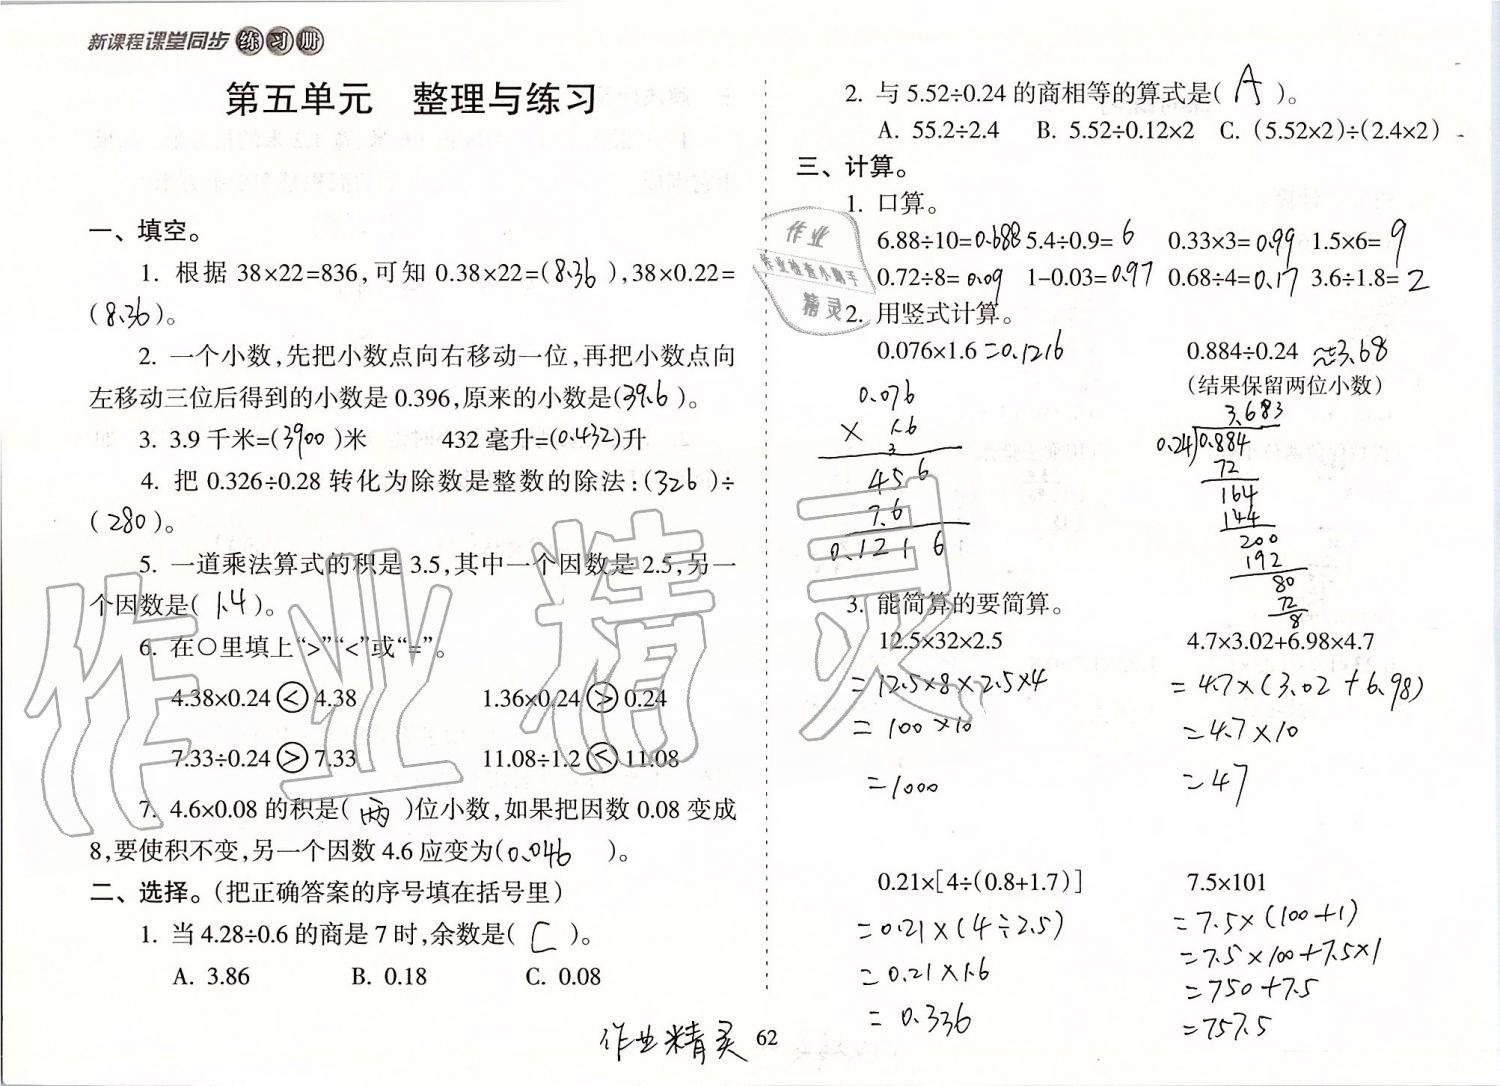 新课程课堂同步练习册
第五单元 整理与练习
一、填空。
1. 根据 38×22=836,可知 0.38×22=(8.36),38×0.22=
(8.36)。
2. 一个小数,先把小数点向右移动一位,再把小数点向
左移动三位后得到的小数是 0.396,原来的小数是(39.6)。
3. 3.9 千米=(3900)米 432 毫升=(0.432)升
4. 把 0.326÷0.28 转化为除数是整数的除法:(326)÷
(280)。
5. 一道乘法算式的积是 3.5,其中一个因数是 2.5,另一
个因数是(1.4)。
6. 在○里填上“>”“<”或“=”。
4.38×0.24 < 4.38 1.36×0.24 > 0.24
7.33÷0.24 > 7.33 11.08÷1.2 < 11.08
7. 4.6×0.08 的积是(两)位小数,如果把因数 0.08 变成
8,要使积不变,另一个因数 4.6 应变为(0.046)。
二、选择。(把正确答案的序号填在括号里)
1. 当 4.28÷0.6 的商是 7 时,余数是(C)。
A. 3.86 B. 0.18 C. 0.08
2. 与 5.52÷0.24 的商相等的算式是(A)。
A. 55.2÷2.4 B. 5.52÷0.12×2 C. (5.52×2)÷(2.4×2)
三、计算。
1. 口算。
6.88÷10=0.688 5.4÷0.9=6 0.33×3=0.99 1.5×6=9
0.72÷8=0.09 1-0.03=0.97 0.68÷4=0.17 3.6÷1.8=2
2. 用竖式计算。
0.076×1.6=0.1216 0.884÷0.24≈3.68
(结果保留两位小数)
0.076
× 1.6
3
456
7.6
0.1216
3.683
0.24 0.884
72
164
144
200
192
80
72
8
3. 能简算的要简算。
12.5×32×2.5 4.7×3.02+6.98×4.7
=12.5×8×2.5×4 =4.7×(3.02+6.98)
=100×10 =4.7×10
=1000 =47
0.21×[4÷(0.8+1.7)] 7.5×101
=0.21×(4÷2.5) =7.5×(100+1)
=0.21×1.6 =7.5×100+7.5×1
=0.336 =750+7.5
=757.5
作业精灵 62
作业
作业检查小助手
精灵
作业精灵